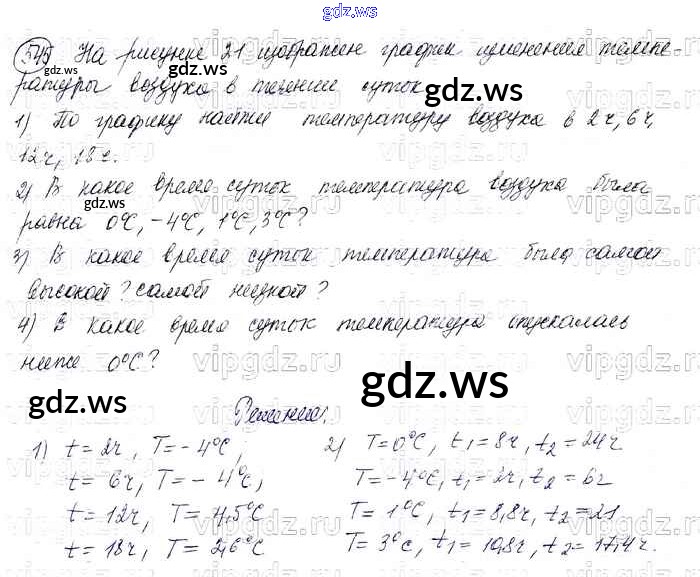 gdz.ws
545 На рисунке 21 изображен график изменения темпе-
ратуры воздуха в течении суток
1) По графику найти температуру воздуха в 2ч, 6ч,
12ч, 18ч.
2) В какое время суток температура воздуха была
равна 0°C, -4°C, 1°C, 3°C?
3) В какое время суток температура была самой
высокой? самой низкой?
4) В какое время суток температура опускалась
ниже 0°C?
Решение.
1) t = 2ч, T = -4°C,
t = 6ч, T = -4°C,
t = 12ч, T = 4,5°C
t = 18ч, T = 2,6°C
2) T = 0°C, t₁ = 8ч, t₂ = 24ч
T = -4°C, t₁ = 2ч, t₂ = 6ч
T = 1°C, t₁ = 8,8ч, t₂ = 21
T = 3°C, t₁ = 10,8ч, t₂ = 17,4ч.
gdz.ws
gdz.ws
gdz.ws
gdz.ws
gdz.ws
vipgdz.ru